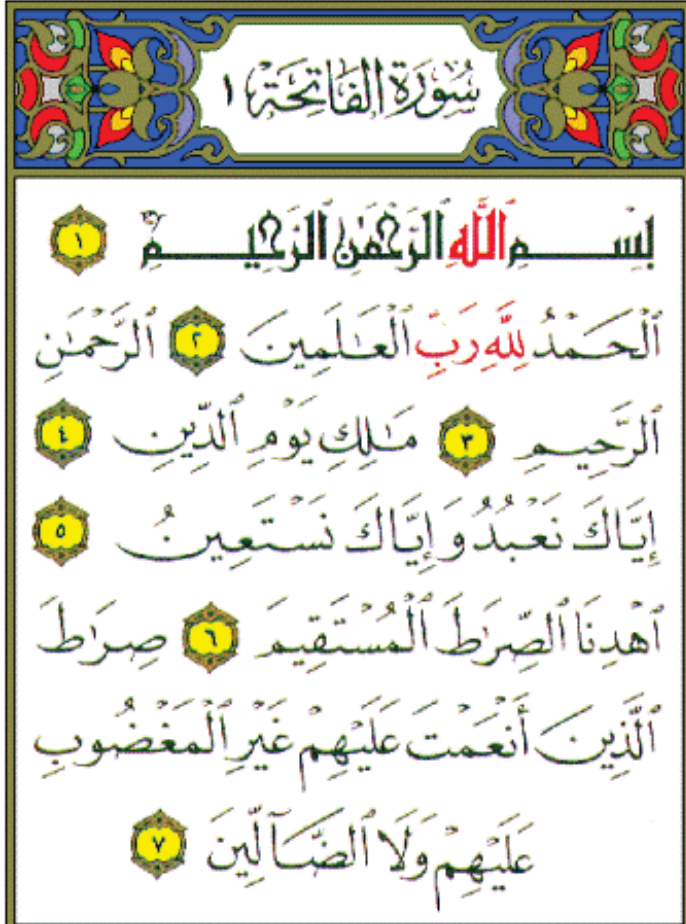 سُورَةُ الفَاتِحَةِ ١
بِسْمِ ٱللَّهِ ٱلرَّحْمَٰنِ ٱلرَّحِيمِ ١
ٱلْحَمْدُ لِلَّهِ رَبِّ ٱلْعَٰلَمِينَ ٢ ٱلرَّحْمَٰنِ
ٱلرَّحِيمِ ٣ مَٰلِكِ يَوْمِ ٱلدِّينِ ٤
إِيَّاكَ نَعْبُدُ وَإِيَّاكَ نَسْتَعِينُ ٥
ٱهْدِنَا ٱلصِّرَٰطَ ٱلْمُسْتَقِيمَ ٦ صِرَٰطَ
ٱلَّذِينَ أَنْعَمْتَ عَلَيْهِمْ غَيْرِ ٱلْمَغْضُوبِ
عَلَيْهِمْ وَلَا ٱلضَّآلِّينَ ٧